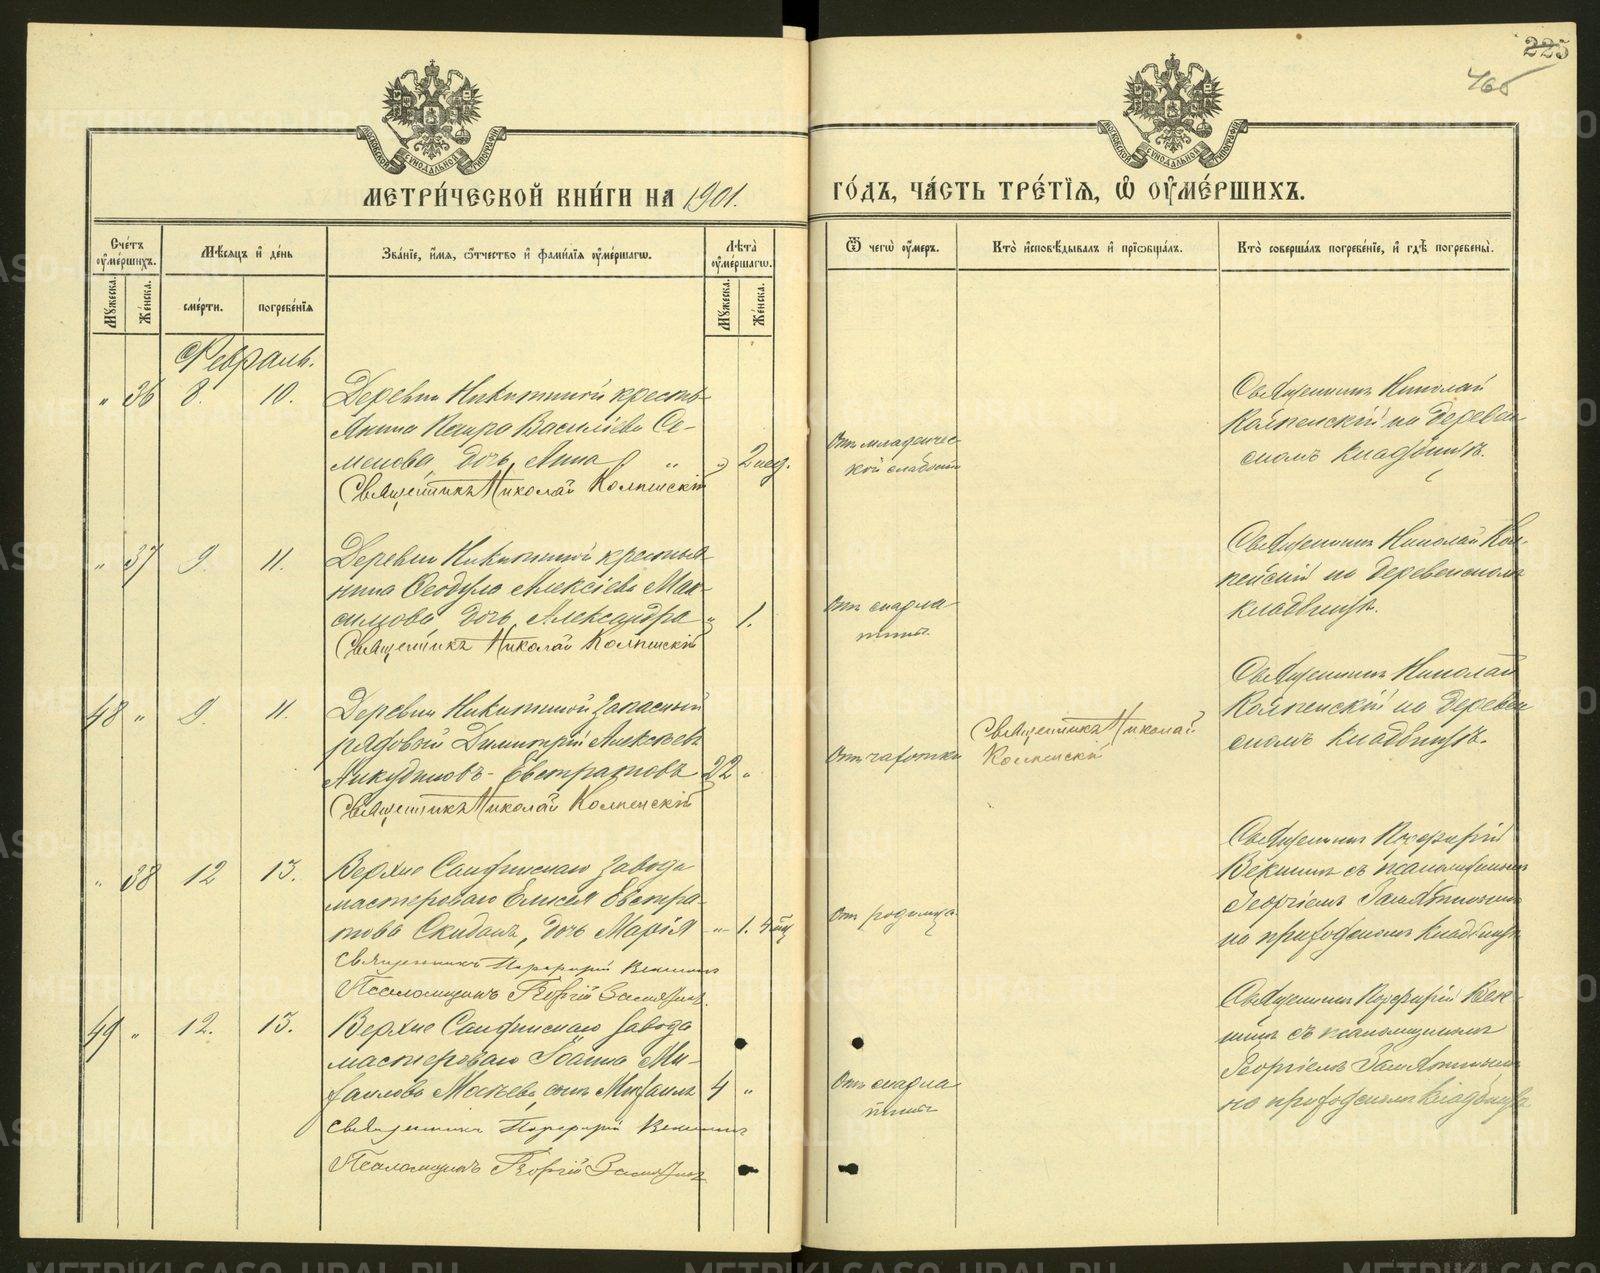 225
МОСКОВСКОЙ СѴНОДАЛЬНОЙ ТИПОГРАФІИ
МОСКОВСКОЙ СѴНОДАЛЬНОЙ ТИПОГРАФІИ
МЕТРИ́ЧЕСКОЙ КНИ́ГИ НА 1901.
ГО́ДЪ, ЧА́СТЬ ТРЕ́ТЇѦ, Ѡ҆ ОУ҆МЕ́РШИХЪ.
Сче́тъ оу҆ме́ршихъ.
Мѣ́сѧцъ и҆ де́нь
Зва́нїе, и҆́мѧ, ѻ҆́тчество и҆ фами́лїѧ оу҆ме́ршагѡ.
Лѣ́та оу҆ме́ршагѡ.
Ѿ чегѡ̀ оу҆́меръ.
Кто̀ и҆сповѣ́дывалъ и҆ прїѡбща́лъ.
Кто̀ соверша́лъ погребе́нїе, и҆ гдѣ̀ погребены̀.
Мꙋ́жеска.
Же́нска.
сме́рти.
погребе́нїѧ
Мꙋ́жеска.
Же́нска.
Февраль.
" 36 8. 10.
Деревни Никитиной кресть-
янина Кира Василіева Се-
менова, дочь Анна " " 2 нед.
Священникъ Николай Колпенскій
Отъ младенчес-
кой слабости
Священникъ Николай
Колпенскій на деревен
скомъ кладбищѣ.
" 37 9. 11.
Деревни Никитиной крестья-
нина Ѳеодула Алексіева Мак-
симова дочь Александра " 1.
Священникъ Николай Колпенскій
Отъ скарла
тины.
Священникъ Николай Кол-
пенскій на деревенскомъ
кладбищѣ.
48 " 9. 11.
Деревни Никитиной запасный
рядовой Димитрій Алексѣевъ
Анкудиновъ-Евстратовъ 22 "
Священникъ Николай Колпенскій
Отъ чахотки
Священникъ Николай
Колпенскій
Священникъ Николай
Колпенскій на деревен
скомъ кладбищѣ.
" 38 12 13.
Верхне Салдинскаго завода
мастероваго Елисея Евстра-
това Скиданъ, дочь Марія " 1. 4 мѣс
Священникъ Порфирій Векшинъ
Псаломщикъ Георгій Замятинъ.
Отъ родимца
Священникъ Порфирій
Векшинъ съ псаломщикомъ
Георгіемъ Замятинымъ
на приходскомъ кладбищѣ
49 " 12. 13.
Верхне Салдинскаго завода
мастероваго Іоанна Ми-
хаилова Мокѣева, сынъ Михаилъ 4 "
Священникъ Порфирій Векшинъ
Псаломщикъ Георгій Замятинъ
Отъ скарла
тины
Священникъ Порфирій Век-
шинъ съ псаломщикомъ
Георгіемъ Замятинымъ
на приходскомъ кладбищѣ
METRIKI.GASO-URAL.RU